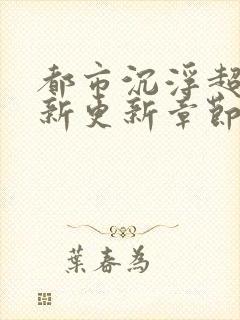 都市沉浮超
新更新章節
葉春為